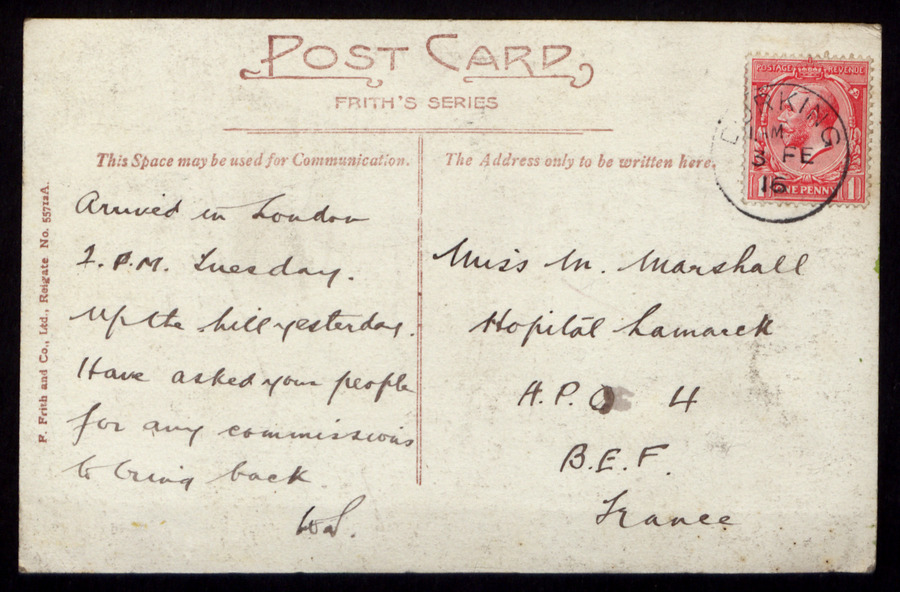 POST CARD
FRITH'S SERIES
This Space may be used for Communication.
Arrived in London
2. P.M. Tuesday.
Up the hill yesterday.
Have asked your people
for any commissions
to bring back
The Address only to be written here.
POSTAGE REVENUE
ONE PENNY
1 1
RKING
AM
3 FE
16
Miss M. Marshall
Hopitâl Lamarck
A.P.O 4
B.E.F.
France
F. Frith and Co., Ltd., Reigate No. 55712A.